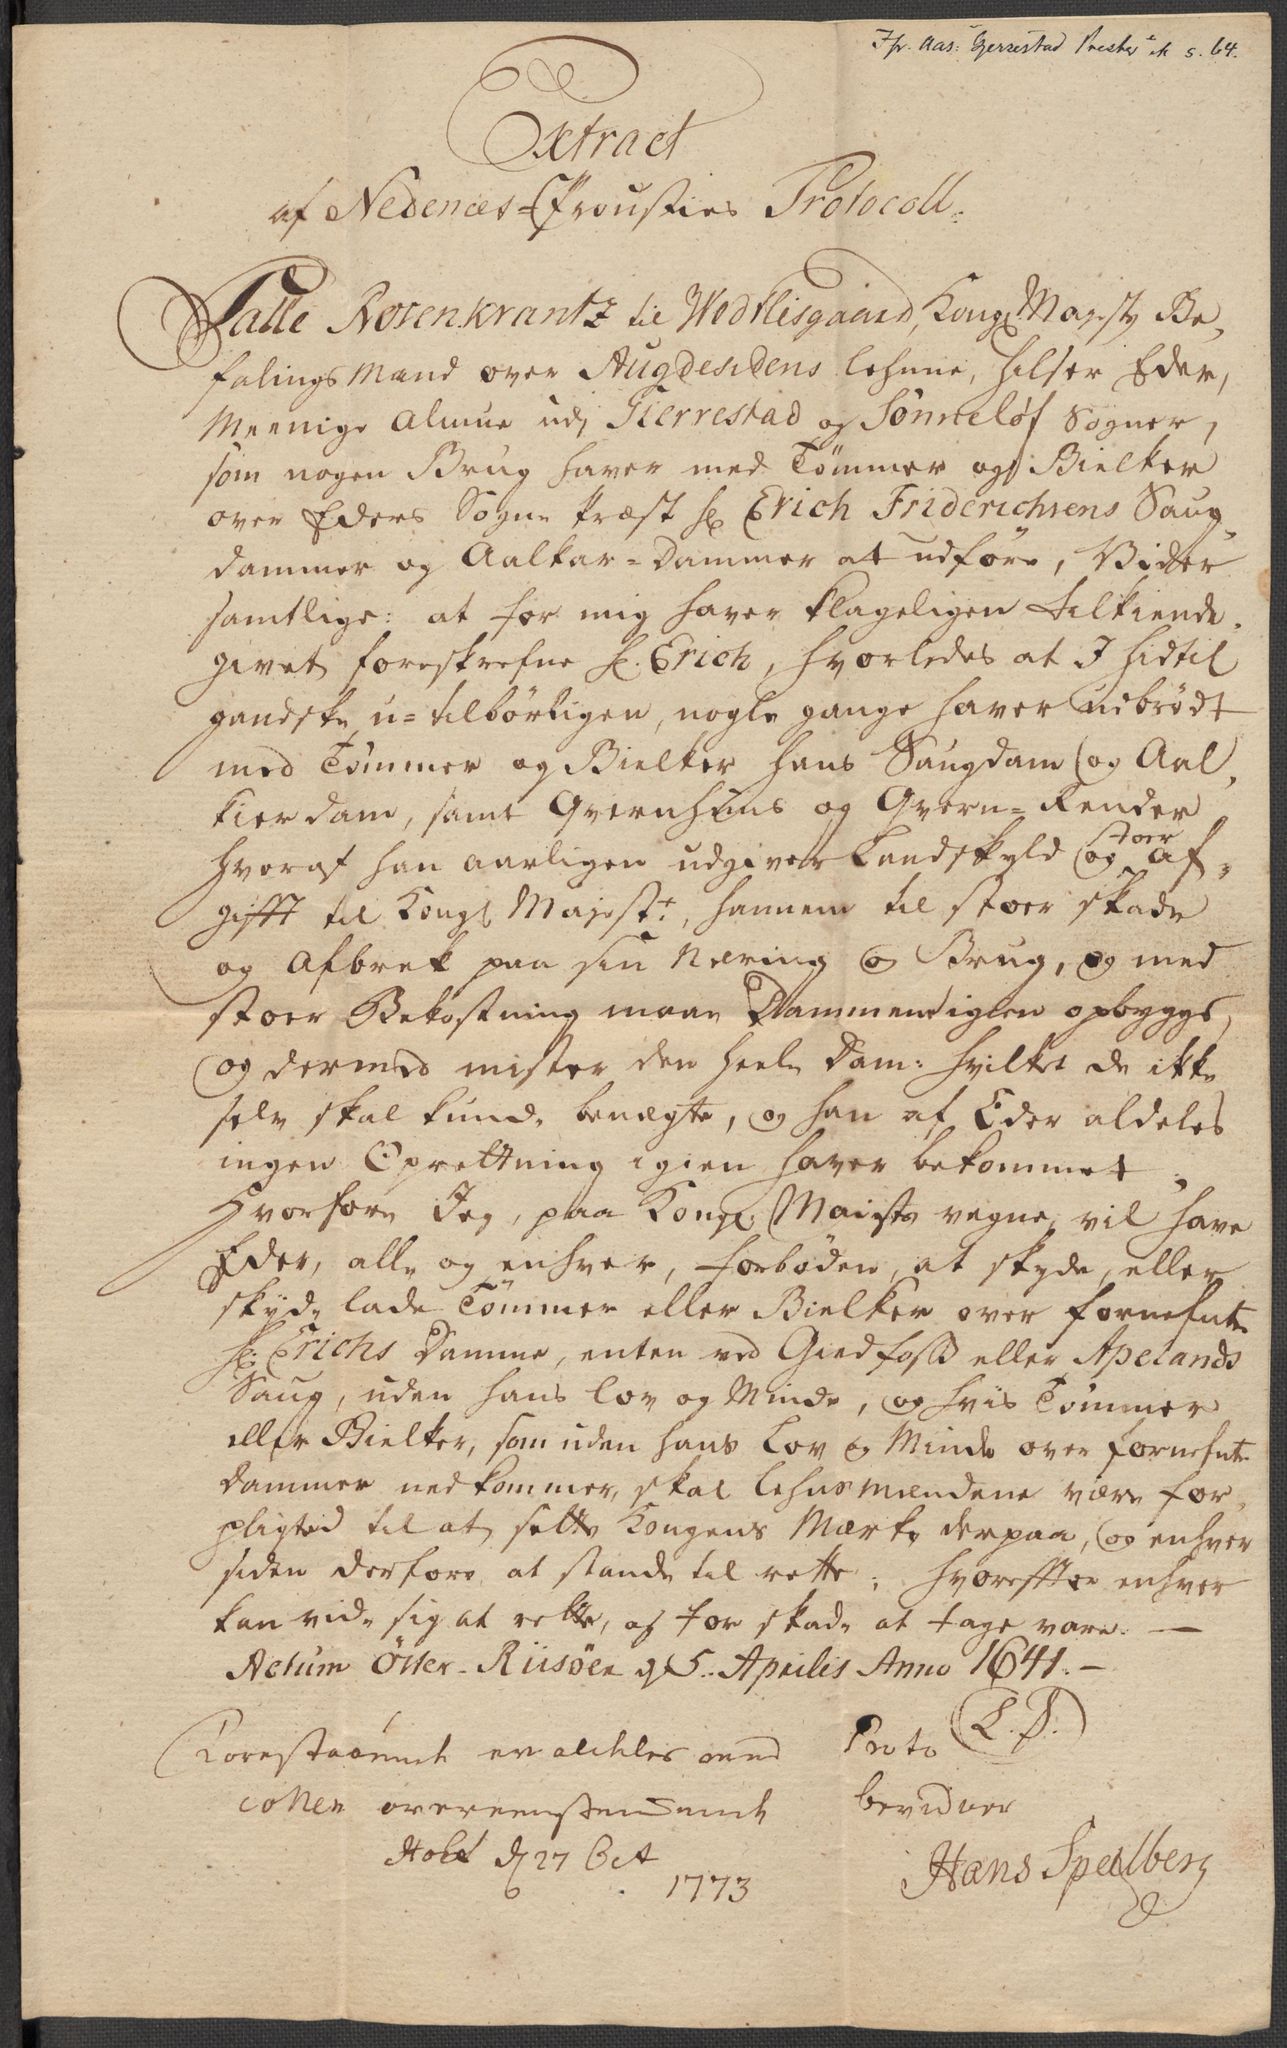 Jfr. Aas: Gjerrestad Prestegj. s. 64.
Extract
af Nedenæs-Prousties Protocoll.
Palle Rosenkrantz til Wedtlisgaard, Kongl Mayts Be-
falingsMand over Augdesidens Lehnne, hilser Eder,
Meenige Almue udi Gierrestad og Sönneløf Sogner,
som nogen Brug haver med Tömmer og Bielker
over Eders Sogne Præst Hr Erich Friderichsens Saug-
dammer og Aalkar-Dammer at udföre, Vider
samtlige: at for mig haver klageligen tilkiende-
givet foreskrefne Hr. Erich, hvorledes at I hidtil
gandske u-tilbörligen, nogle gange haver udbrödt
med Tömmer og Bielker hans Saugdam og Aal-
kierdam, samt Qvernhuus og Qvern-Render
hvoraf han aarligen udgiver Landskyld og stoer Af-
gifft til Kongl Majestt, hannem til stoer skade
og Afbrek paa sin Næring og Brug, og med
stoer Bekostning maae Dammen igien opbygge,
og dermed mister den heele Dam: hvilket de ikke
selv skal kunde benægte, og han af Eder aldeles
ingen Oprettning igien haver bekommet;
Hvorfore Jeg, paa Kongl: Maiests vegne, vil have
Eder, alle og enhver, forböden, at skyde, eller
skyde lade Tömmer eller Bielker over fornefnte
Hr: Erichs Damme, enten ved Giedfoss eller Apelands
Saug, uden hans Lov og Minde, og hvis Tömmer
eller Bielker, som uden hans Lov og Minde over fornefnte
Dammer nedkommer, skal Lehnsmændene være for-
pligted til at sette Kongens Mærke derpaa, og enhver
siden derfore at stande til rette; hvorefter enhver
kan vide sig at rette, og for skade at tage vare. —
Actum Öster-Riisöer d. 5. Aprilis Anno 1641. —
(L. S.)
Forestaaende er aldeles med Proto
collen overeensstemmende bevidner
Holt d. 27 Oct
1773
Hans Spedlberg